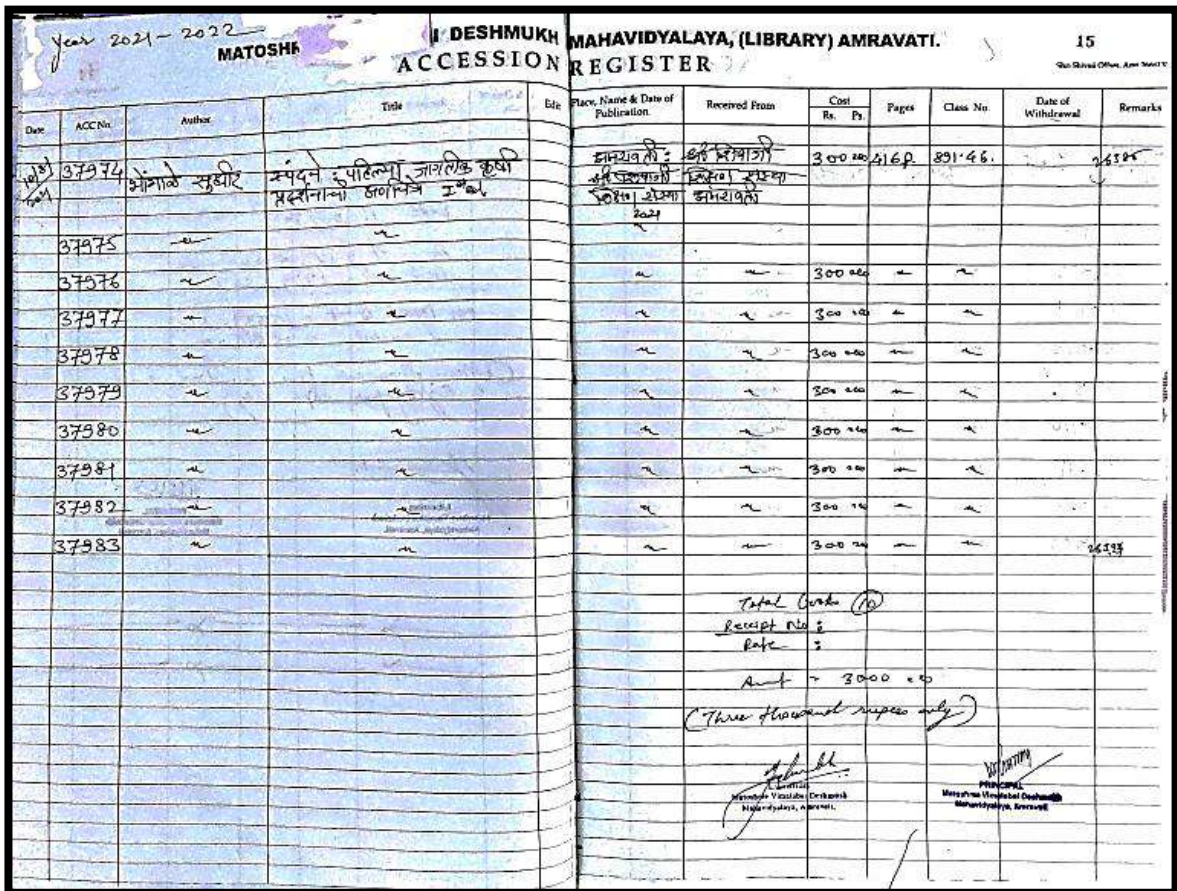 Year 2021-2022
MATOSHR I DESHMUKH MAHAVIDYALAYA, (LIBRARY) AMRAVATI. 15
ACCESSION REGISTER
Date ACC No. Author Title Edit Place, Name & Date of Publication Received From Cost Rs. Ps. Pages Class No. Date of Withdrawal Remarks
37974 भोंगाळे सुधीर स्पंदने : पहिल्या जागतिक कृषी अमरावती: श्री शिवाजी 300 00 416p. 891.46.
प्रदर्शनाचा श्री शिवाजी शिक्षण संस्था
शिक्षण संस्था अमरावती
2021
37975 " " "
37976 " " " " 300 00 " "
37977 " " " " 300 00 " "
37978 " " " " 300 00 " "
37979 " " " " 300 00 " "
37980 " " " " 300 00 " "
37981 " " " " 300 00 " "
37982 " " " " 300 00 " "
37983 " " " " 300 00 " "
Total books 10
Receipt No :
Rate :
Amt = 3000 00
(Three thousand rupees only)
Matoshree Vimalabai Deshmukh
Mahavidyalaya, Amravati.
PRINCIPAL
Matoshree Vimalabai Deshmukh
Mahavidyalaya, Amravati